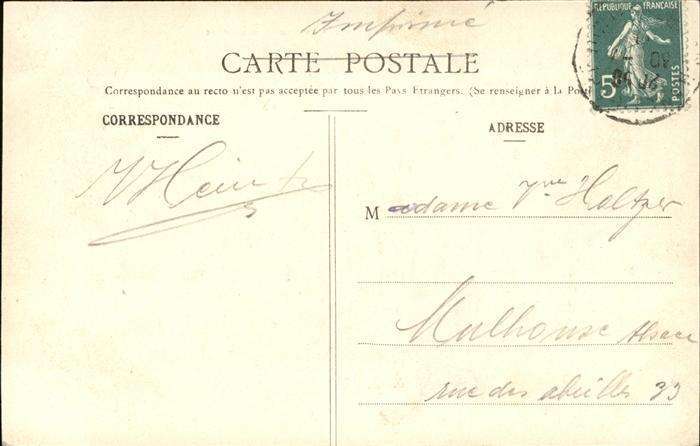 Imprimé
CARTE POSTALE
Correspondance au recto n'est pas acceptée par tous les Pays Etrangers. (Se renseigner à la Post
CORRESPONDANCE
ADRESSE
REPUBLIQUE FRANÇAISE
5c
POSTES
Madame Vve Holtzer
Mulhouse Alsace
rue des abeilles 33